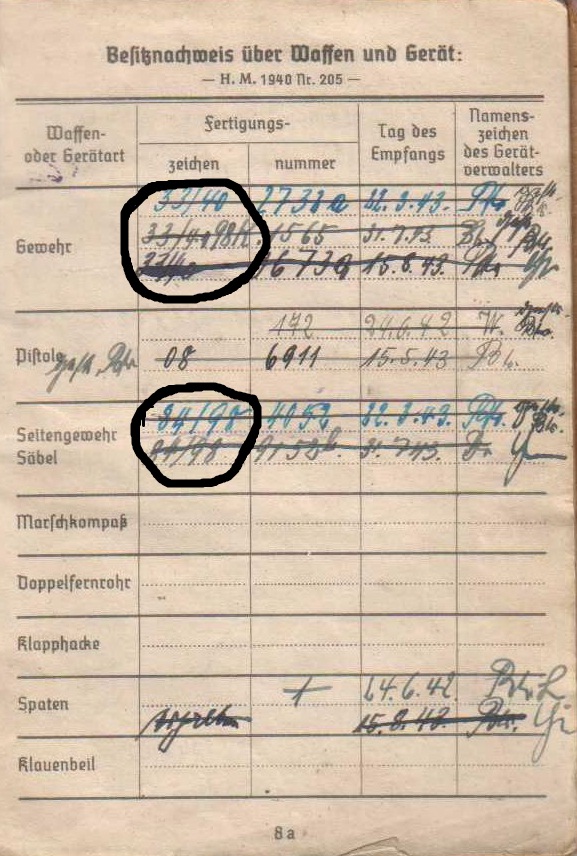 Besitznachweis über Waffen und Gerät:
— H. M. 1940 Nr. 205 —
Waffen-
oder Gerätart
Fertigungs-
zeichen
nummer
Tag des
Empfangs
Namens-
zeichen
des Gerät-
verwalters
Gewehr
33/40 2738a 22.3.43.
33/40 98k 1565 31.7.43
33/40 1673a 15.8.43.
172 24.6.42 W.
Pistole 08 6911 15.5.43
Seitengewehr
Säbel
84/98 4052 22.3.43.
84/98 31.7.43.
Marschkompaß
Doppelfernrohr
Klapphacke
Spaten
14.6.42
15.8.43
Klauenbeil
8a